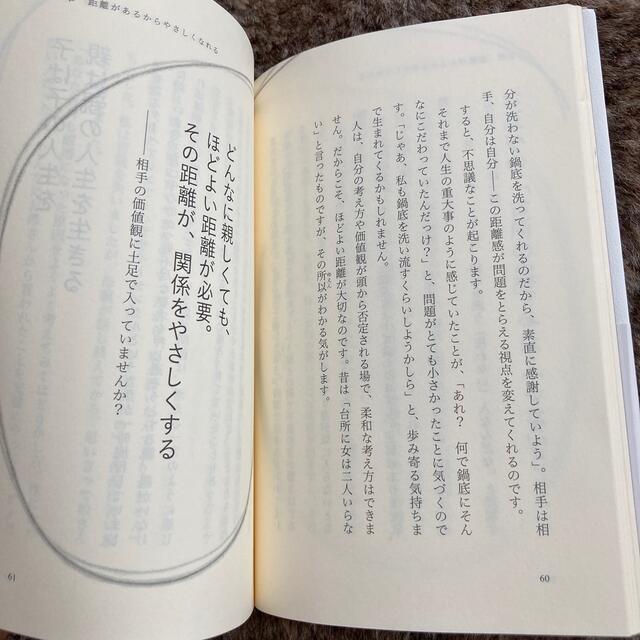 分が洗わない鍋底を洗ってくれるのだから、素直に感謝していよう」。相手は相
手、自分は自分――この距離感が問題をとらえる視点を変えてくれるのです。
すると、不思議なことが起こります。
それまで人生の重大事のように感じていたことが、「あれ？　何で鍋底にそん
なにこだわっていたんだっけ？」と、問題がとても小さかったことに気づくので
す。「じゃあ、私も鍋底を洗い流すくらいしようかしら」と、歩み寄る気持ちま
で生まれてくるかもしれません。
人は、自分の考え方や価値観が頭から否定される場で、柔和な考え方はできま
せん。だからこそ、ほどよい距離が大切なのです。昔は「台所に女は二人いらな
い」と言ったものですが、その所以がわかる気がします。
ゆえん
60
距離があるからやさしくなれる
どんなに親しくても、
ほどよい距離が必要。
その距離が、関係をやさしくする
――相手の価値観に土足で入っていませんか？
61